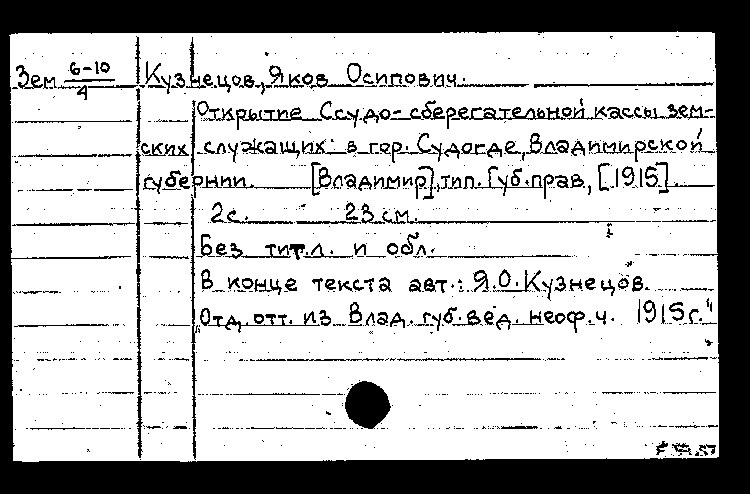 Зем 6-10/4 Кузнецов, Яков Осипович.
Открытие Ссудо-сберегательной кассы зем-
ских служащих в гор. Судогде, Владимирской
губернии. [Владимир], тип. Губ. прав, [1915].
2с. 23 см.
Без тит. л. и обл.
В конце текста авт.: Я.О. Кузнецов.
"Отд. отт. из Влад. губ. вед. неоф. ч. 1915г."